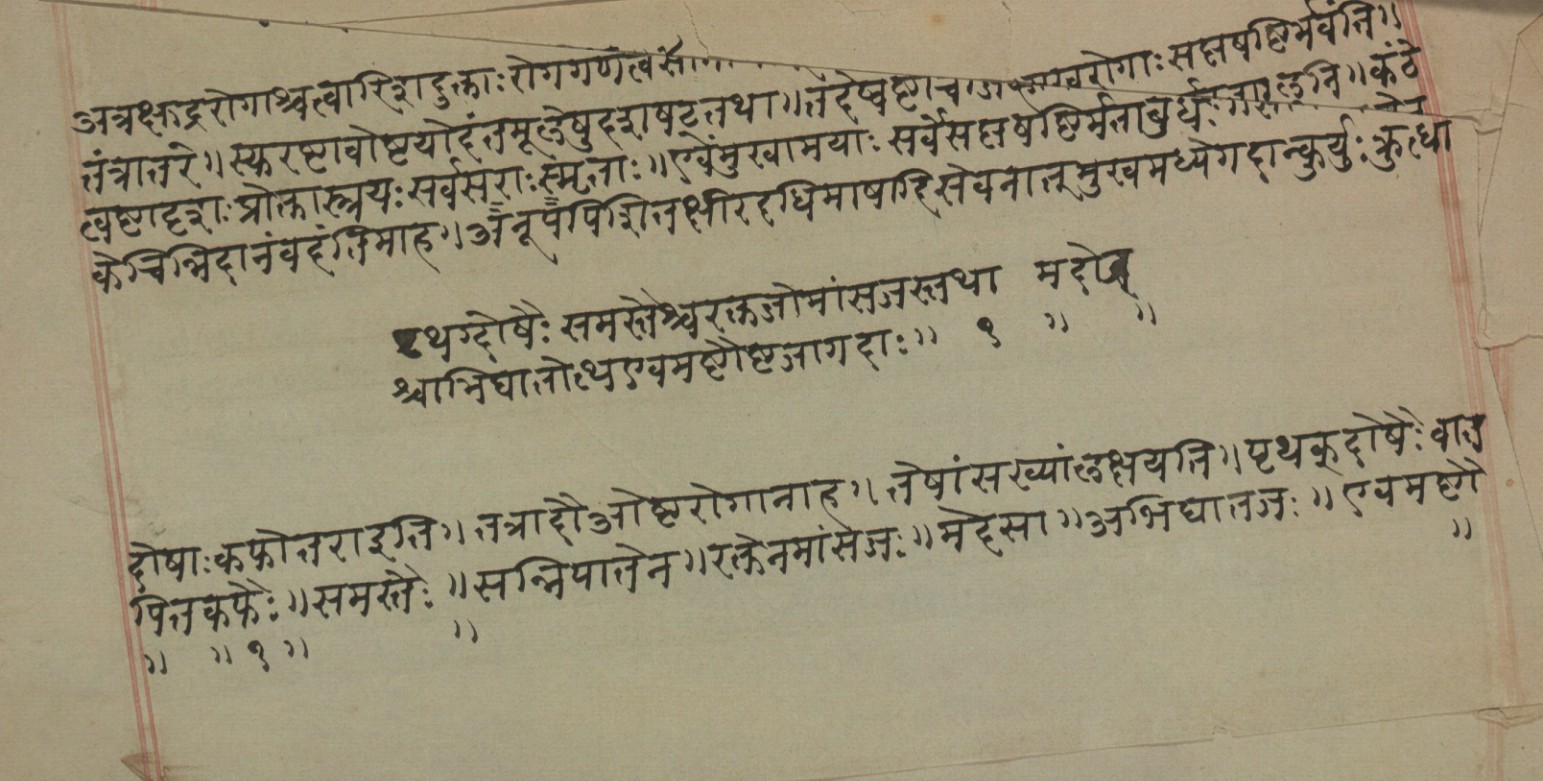 अत्रक्षुद्ररोगाश्चत्वारिंशदुक्ताः रोगगणंत्वसौ रोगाः सप्तषष्टिर्भवंति॥
तंत्रातरे॥ स्फरष्टावोष्टयोर्दंतमूलेषुदशषट्तथा॥ कंठे
त्वष्टादृशः प्रोक्तास्त्रयः सर्वसराः स्मृताः॥ एवंमुखामयाः सर्वेसप्तषष्टिर्मताबुधैः
केचिन्निदानंवदंतिमाह॥ अनूपपिशितक्षीरदधिमाषादिसेवनात् मुखमध्येगदान्कुर्युः क्रुत्धा
पृथग्दोषैः समस्तैश्चरक्तजोमांसजस्तथा मदोज
श्चाभिघातोत्थएवमष्टौष्टजागदाः॥ १ ॥ ॥
दोषाः कफोत्तराइति॥ तत्रादौओष्टरोगानाह॥ तेषांसख्यांलक्षयति॥ पृथक्दोषैः वात
पित्तकफैः॥ समस्तैः॥ सन्निपातेन॥ रक्तेनमांसजः॥ मेदसा॥ अभिघातजः॥ एवमष्टौ
॥ ॥ १ ॥ ॥ ॥